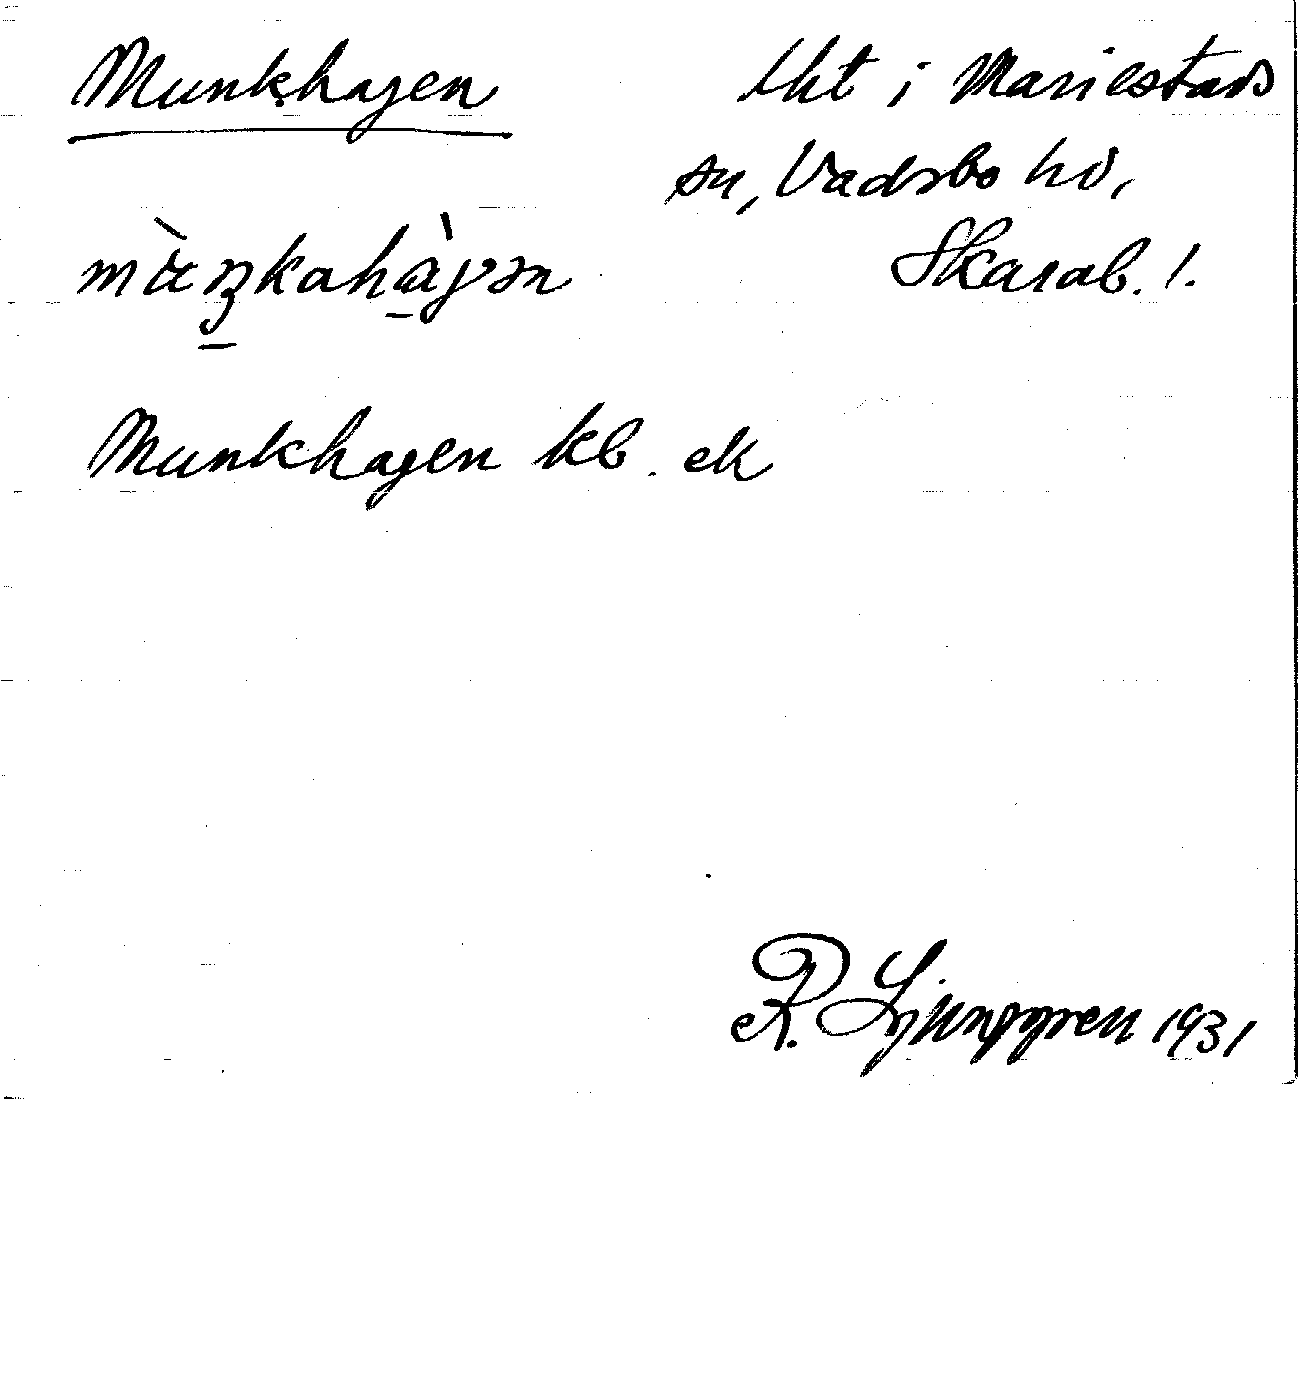 Munkhagen
lht i Mariestads
sn, Vadsbo hd,
Skarab. l.
Munkhagen kb. ek
R. Ljunggren 1931